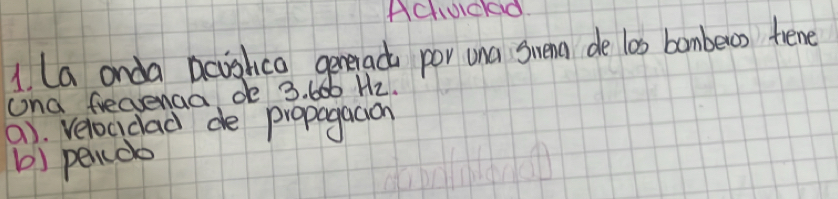 Actividad
1. La onda acústica generada por una sirena de los bomberos tiene
una frecuencia de 3.600 Hz.
a). Velocidad de propagación
b) periodo